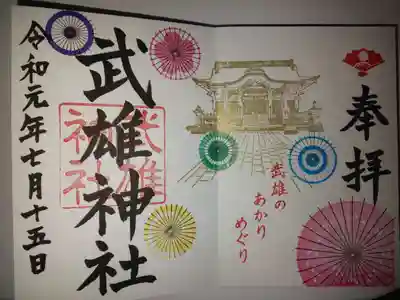 奉拝
武雄の
あかり
めぐり
武雄神社
武雄
神社
令和元年七月十五日